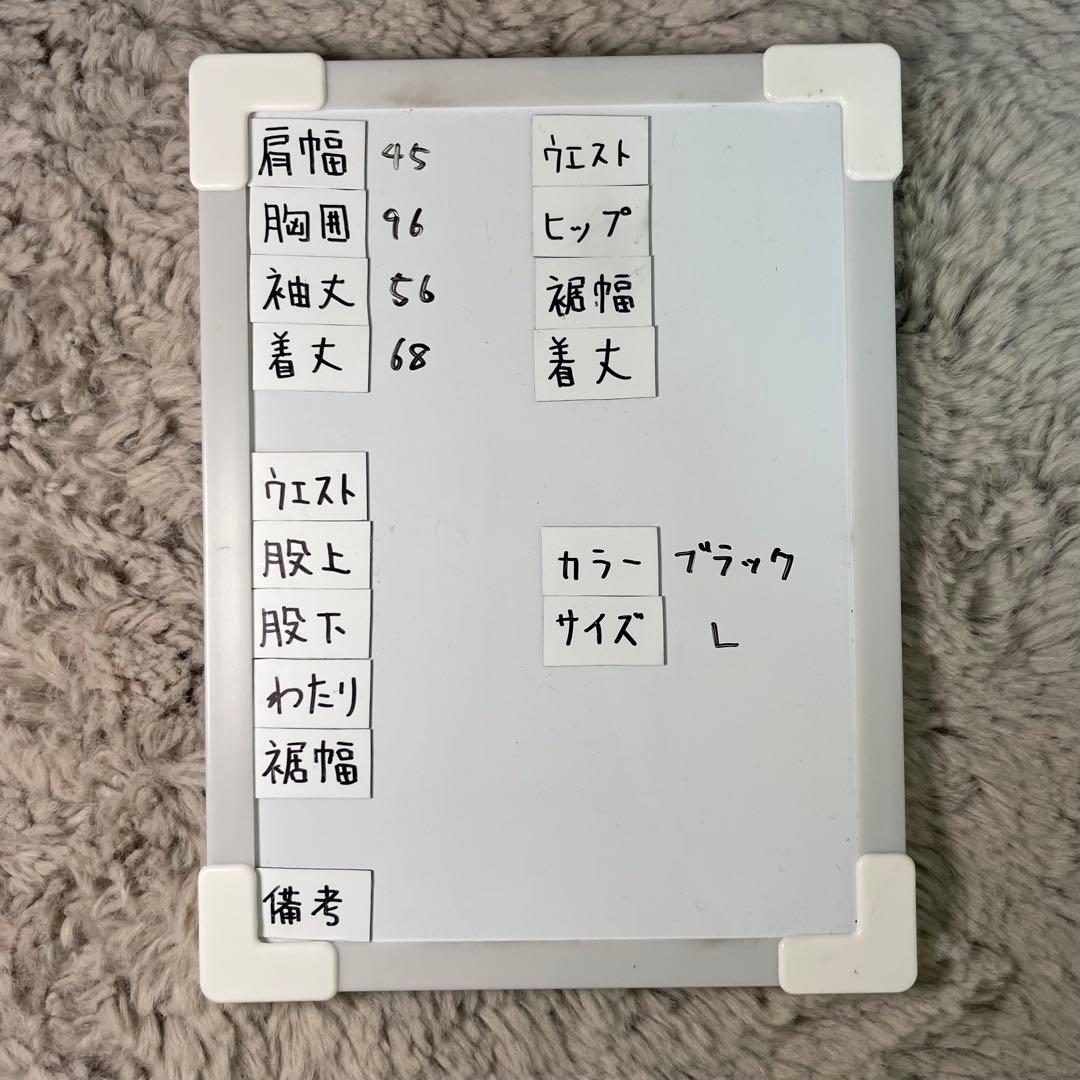 肩幅 45
胸囲 96
袖丈 56
着丈 68
ウエスト
ヒップ
裾幅
着丈
ウエスト
股上
股下
わたり
裾幅
カラー ブラック
サイズ L
備考